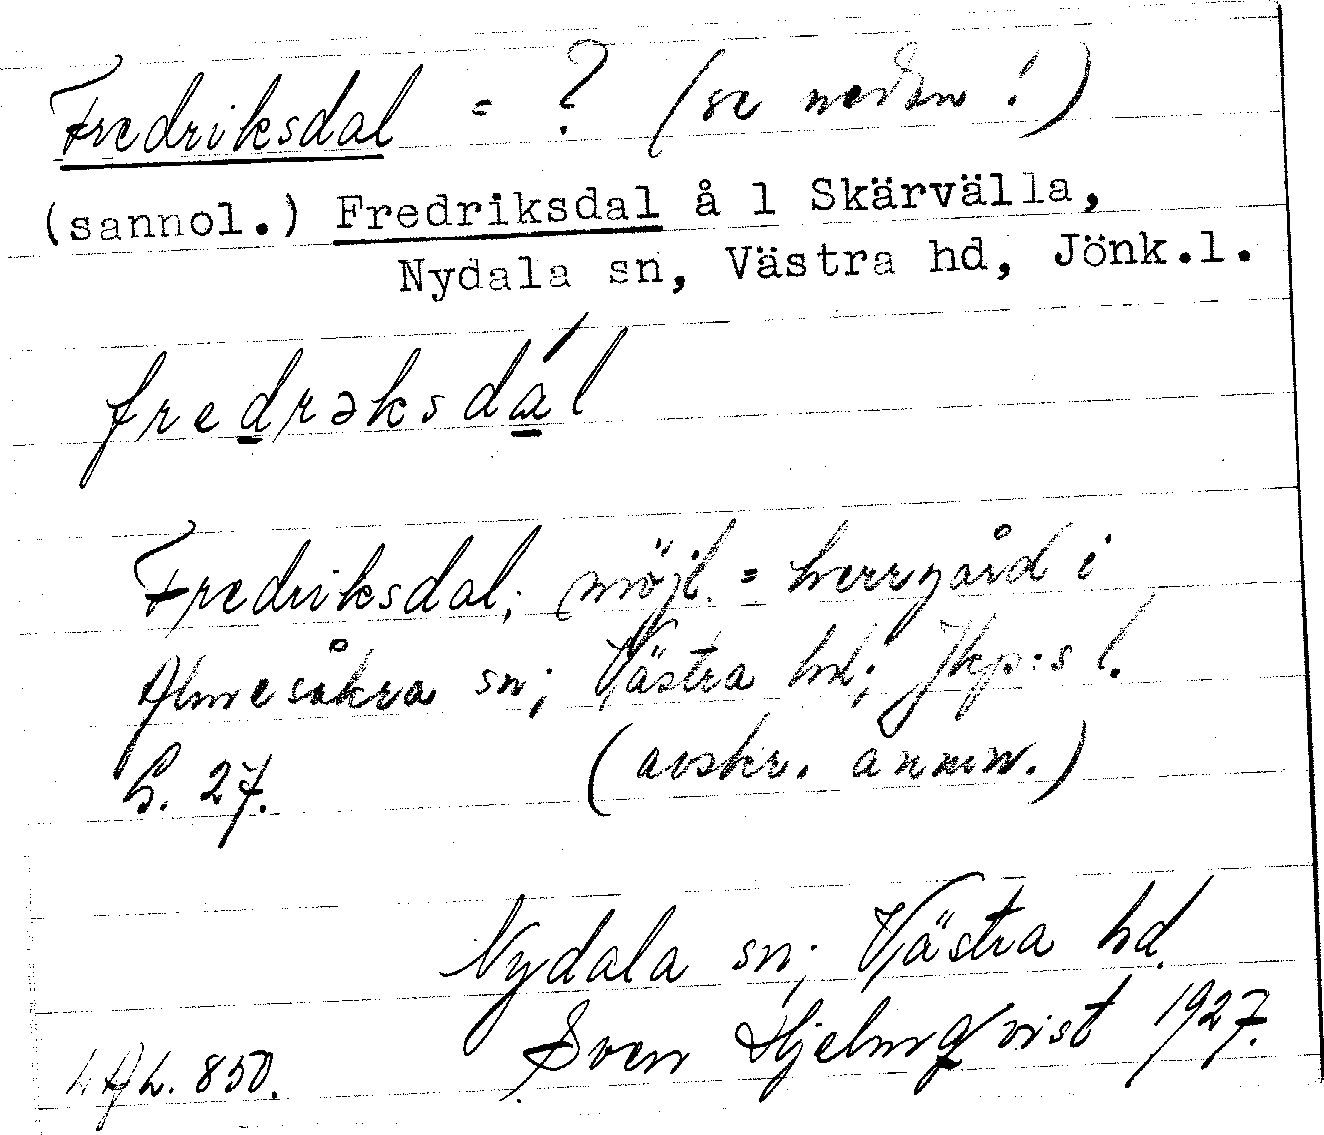 Fredriksdal = ? (se nedan!)
(sannol.) Fredriksdal å 1 Skärvälla,
Nydala sn, Västra hd, Jönk.l.
fredrəksdál
Fredriksdal, möjl. = herrgård i
Almesåkra sn; Västra hd; Jkp:s l.
S. 27. (avskr. anmm.)
Nydala sn; Västra hd.
LAL. 850. Sven Hjelmqvist 1927.